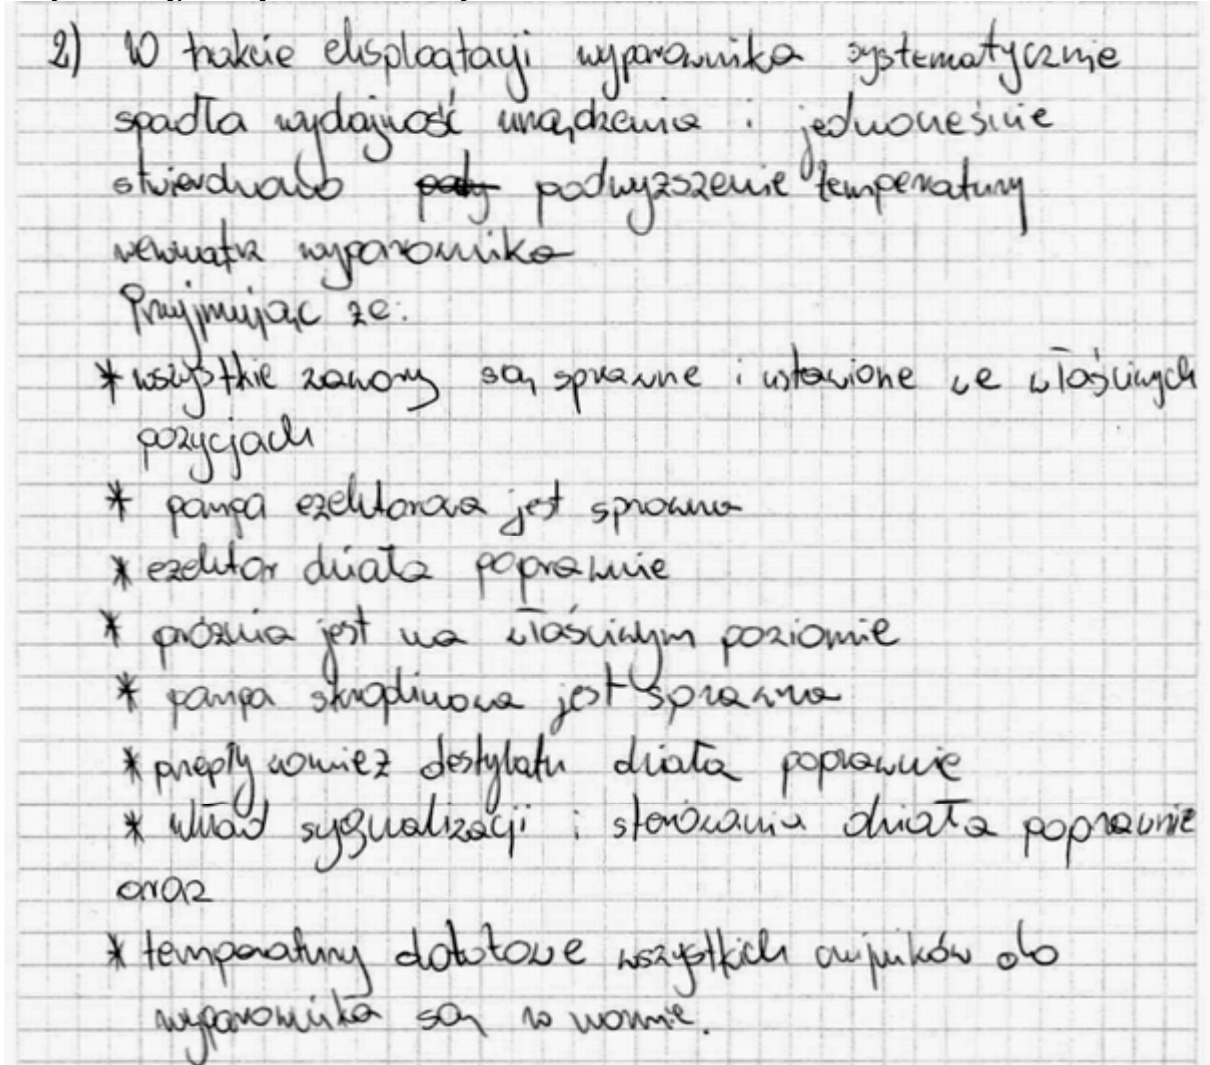 2) W trakcie eksploatacji wyparownika systematycznie
spadła wydajność urządzenia i jednocześnie
stwierdzono podwyższenie temperatury
wewnątrz wyparownika
Przyjmując że:
* wszystkie zawory są sprawne i ustawione we właściwych
pozycjach
* pompa ezektorowa jest sprawna
* ezektor działa poprawnie
* próżnia jest na właściwym poziomie
* pompa skroplinowa jest sprawna
* przepływomierz destylatu działa poprawnie
* układ sygnalizacji i sterowania działa poprawnie
oraz
* temperatury dolotowe wszystkich czynników do
wyparownika są w normie.